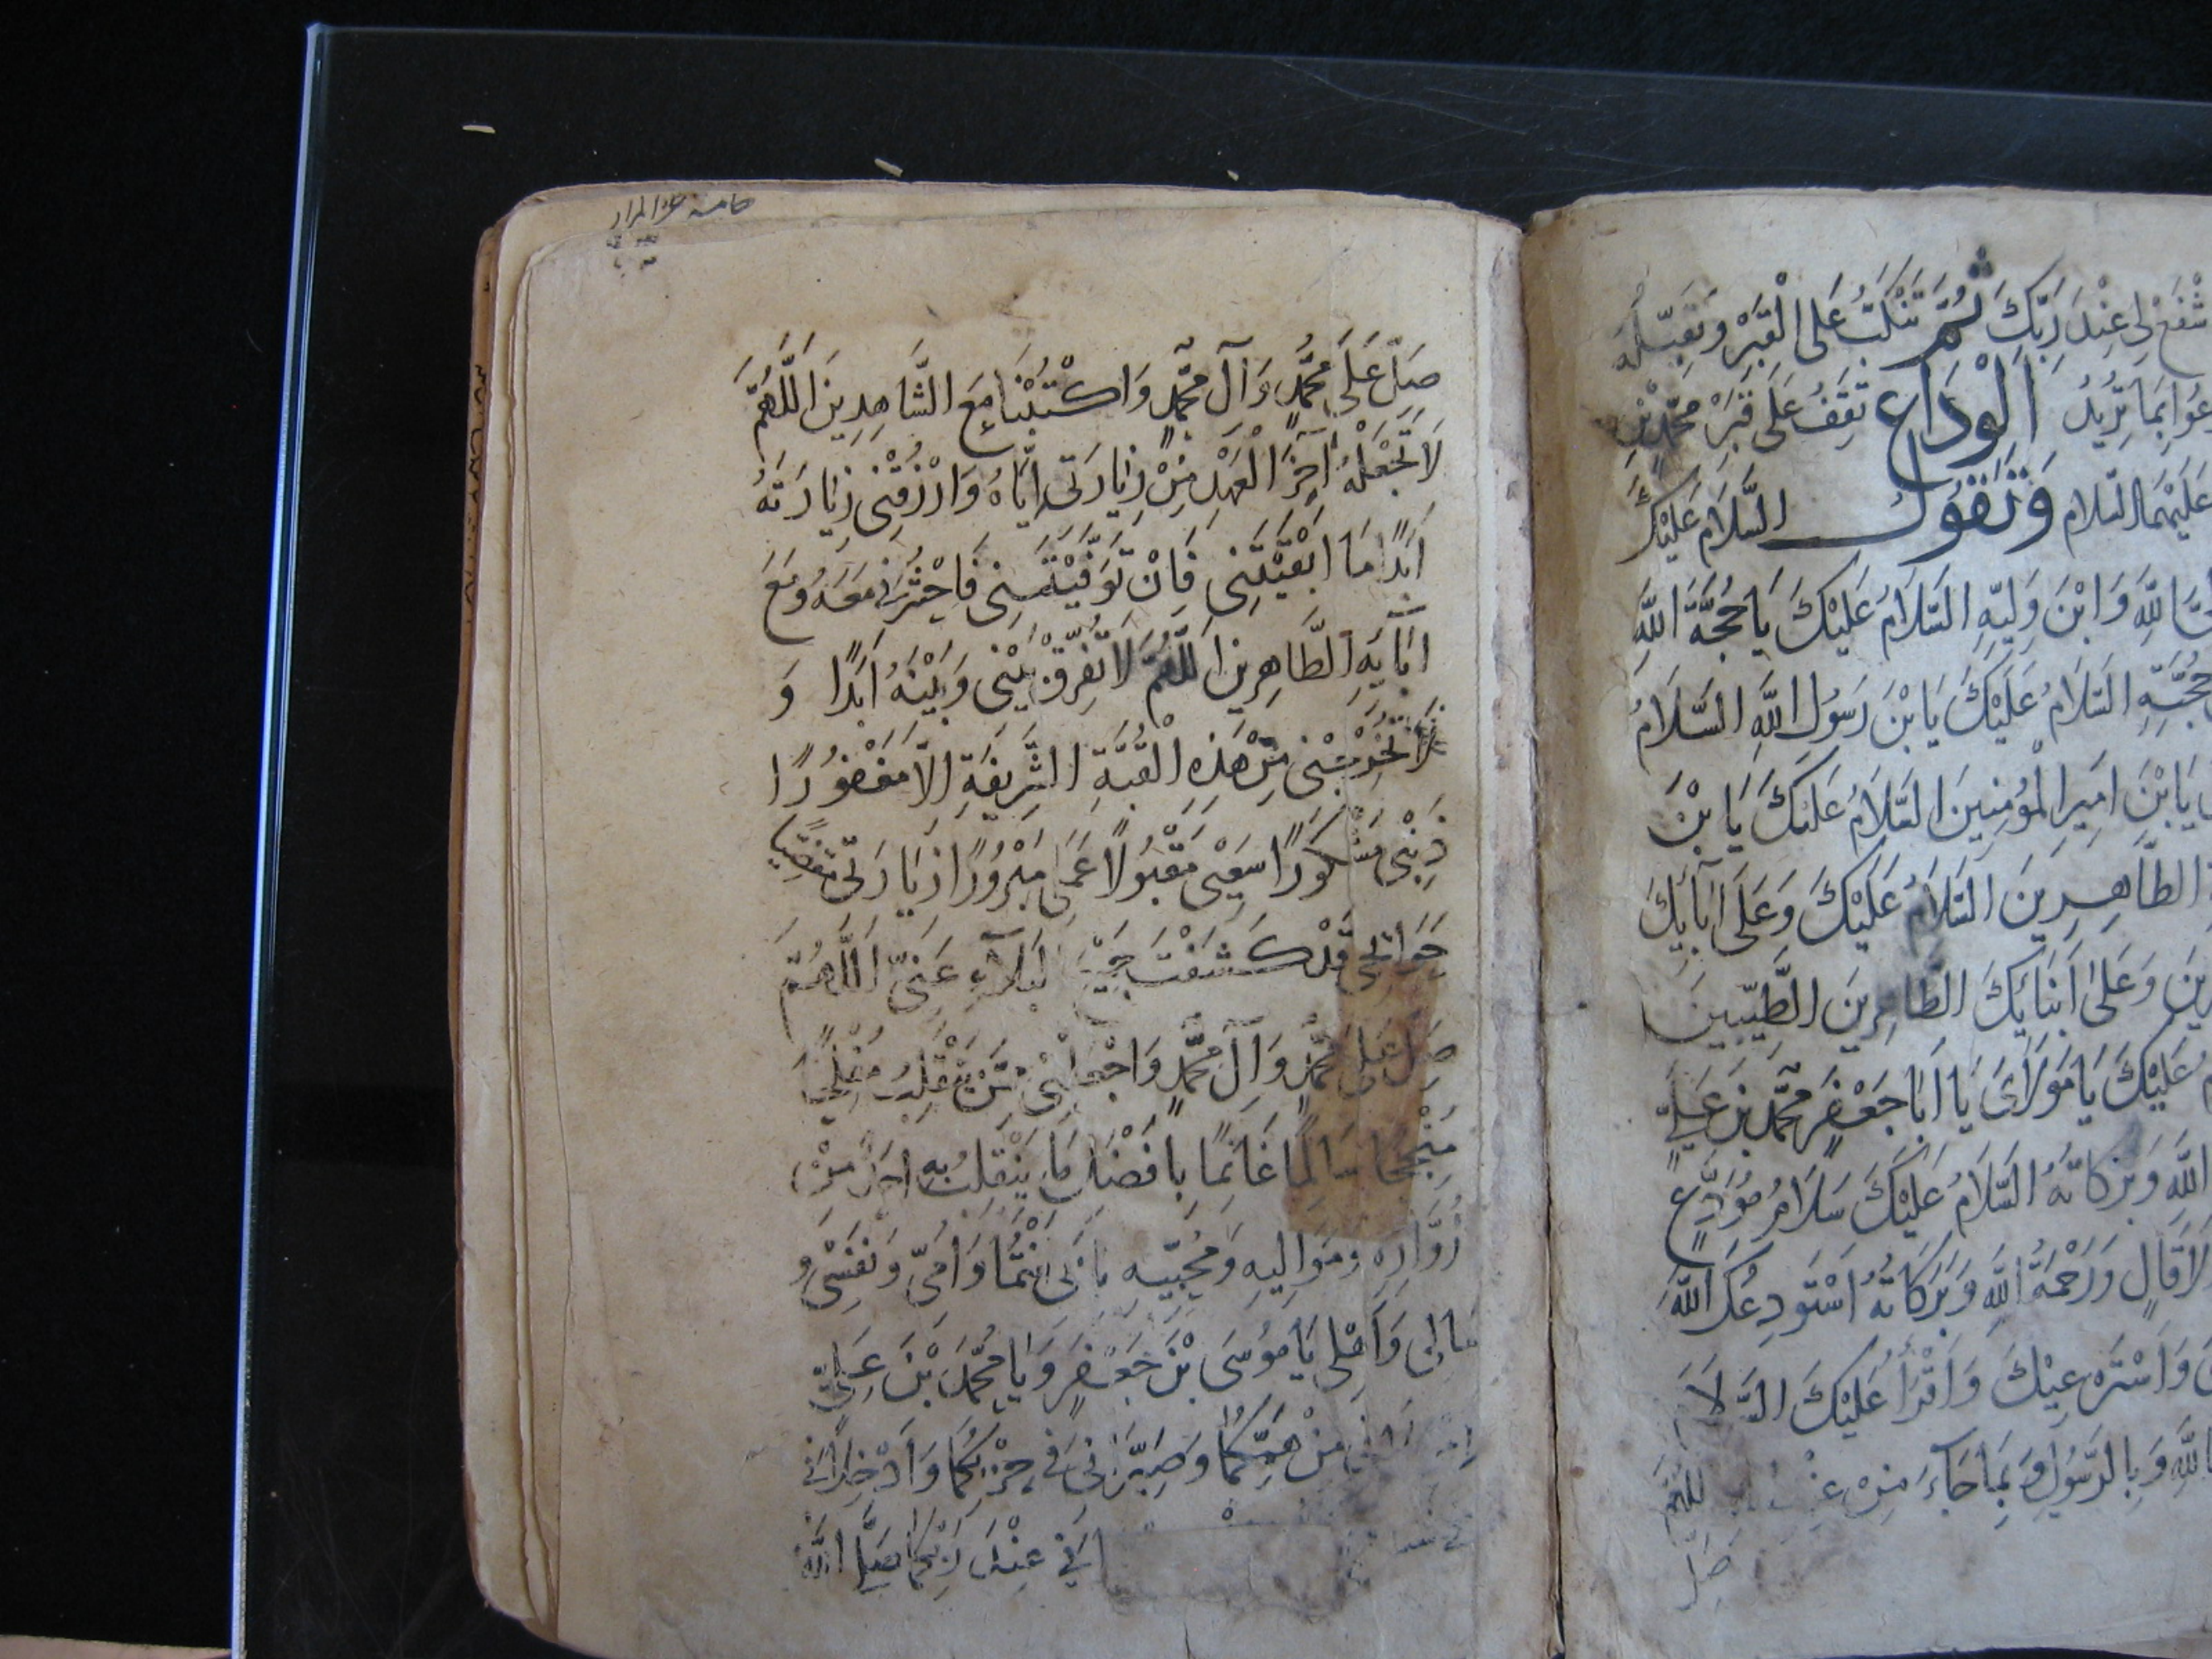 شْفَعْ لِى عِنْدَ رَبِّكَ ثُمَّ تَنْكَبُّ عَلَى الْقَبْرِ وَتُقَبِّلُهُ
بِمَا تُرِيدُ الْوَدَاعُ تَقِفُ عَلَى قَبْرِ مُحَمَّدِ بْنِ
عَلَيْهِمَا السَّلَامُ وَتَقُولُ السَّلَامُ عَلَيْكَ
اللَّهِ وَابْنَ وَلِيِّهِ السَّلَامُ عَلَيْكَ يَا حُجَّةَ اللَّهِ
حُجَّتِهِ السَّلَامُ عَلَيْكَ يَا بْنَ رَسُولِ اللَّهِ السَّلَامُ
يَا بْنَ اَمِيرِ الْمُؤْمِنِينَ السَّلَامُ عَلَيْكَ يَا بْنَ
الطَّاهِرِينَ السَّلَامُ عَلَيْكَ وَعَلَى اٰبَآئِكَ
وَعَلَى اَبْنَائِكَ الطَّاهِرِينَ الطَّيِّبِينَ
عَلَيْكَ يَا مَوْلَاىَ يَا اَبَا جَعْفَرٍ مُحَمَّدَ بْنَ عَلِيٍّ
اللَّهِ وَبَرَكَاتُهُ السَّلَامُ عَلَيْكَ سَلَامُ مُوَدِّعٍ
لَا قَالٍ وَرَحْمَةُ اللَّهِ وَبَرَكَاتُهُ اَسْتَودِعُكَ اللَّهَ
وَاَقْرَأُ عَلَيْكَ السَّلَا
بِاللَّهِ وَبِالرَّسُولِ وَبِمَا جَاءَ مِنْ اللَّهُمَّ
صَلِّ
صَلِّ عَلَى مُحَمَّدٍ وَآلِ مُحَمَّدٍ وَاكْتُبْنَا مَعَ الشَّاهِدِينَ اَللَّهُمَّ
لَا تَجْعَلْهُ اٰخِرَ الْعَهْدِ مِنْ زِيَارَتِى اِيَّاهُ وَارْزُقْنِى زِيَارَتَهُ
اَبَدًا مَا اَبْقَيْتَنِى فَاِنْ تَوَفَّيْتَنِى فَاحْشُرْنِى مَعَهُ وَمَعَ
اٰبَآئِهِ الطَّاهِرِينَ اللَّهُمَّ لَا تُفَرِّقْ بَيْنِى وَبَيْنَهُ اَبَدًا وَ
لَا تُخْرِجْنِى مِنْ هَذِهِ الْقُبَّةِ الشَّرِيفَةِ اِلَّا مَغْفُورًا
ذَنْبِى مَشْكُورًا سَعْيِى مَقْبُولًا عَمَلِى مَبْرُورًا زِيَارَتِى مَقْضِيًّا
حَوَائِجِى قَدْ كَشَفْتَ جَمِيْعَ الْبَلَآءِ عَنِّى اَللَّهُمَّ
صَلِّ عَلَى مُحَمَّدٍ وَآلِ مُحَمَّدٍ وَاجْعَلْنِى مِمَّنْ يَنْقَلِبُ مُفْلِحًا
مُنْجِحًا سَالِمًا غَانِمًا بِاَفْضَلِ مَا يَنْقَلِبُ بِهِ اَحَدٌ مِنْ
زُوَّارِهِ وَمَوَالِيهِ وَمُحِبِّيهِ بِاَبِى اَنْتُمَا وَاُمِّى وَنَفْسِى وَ
مَالِى وَاَهْلِى يَا مُوسَى بْنَ جَعْفَرٍ وَيَا مُحَمَّدَ بْنَ عَلِيٍّ
مِنْ هَمِّكُمَا وَصَيِّرَانِى فِى حِزْبِكُمَا وَاَدْخِلَانِى
فِى عِنْدَ رَبِّكُمَا صَلَّى اللَّهُ